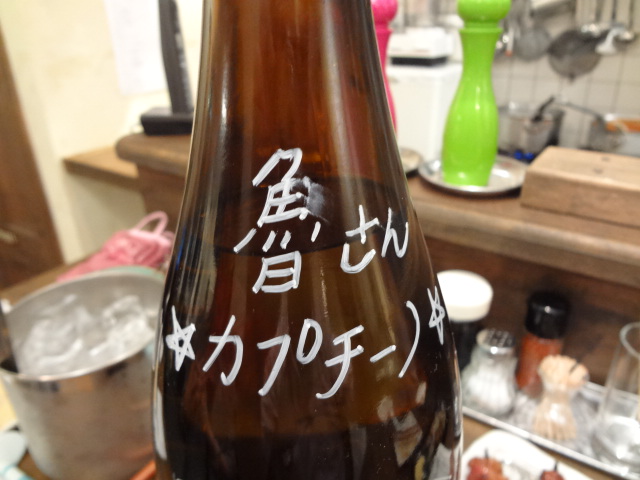 魯さん
☆カプチーノ☆